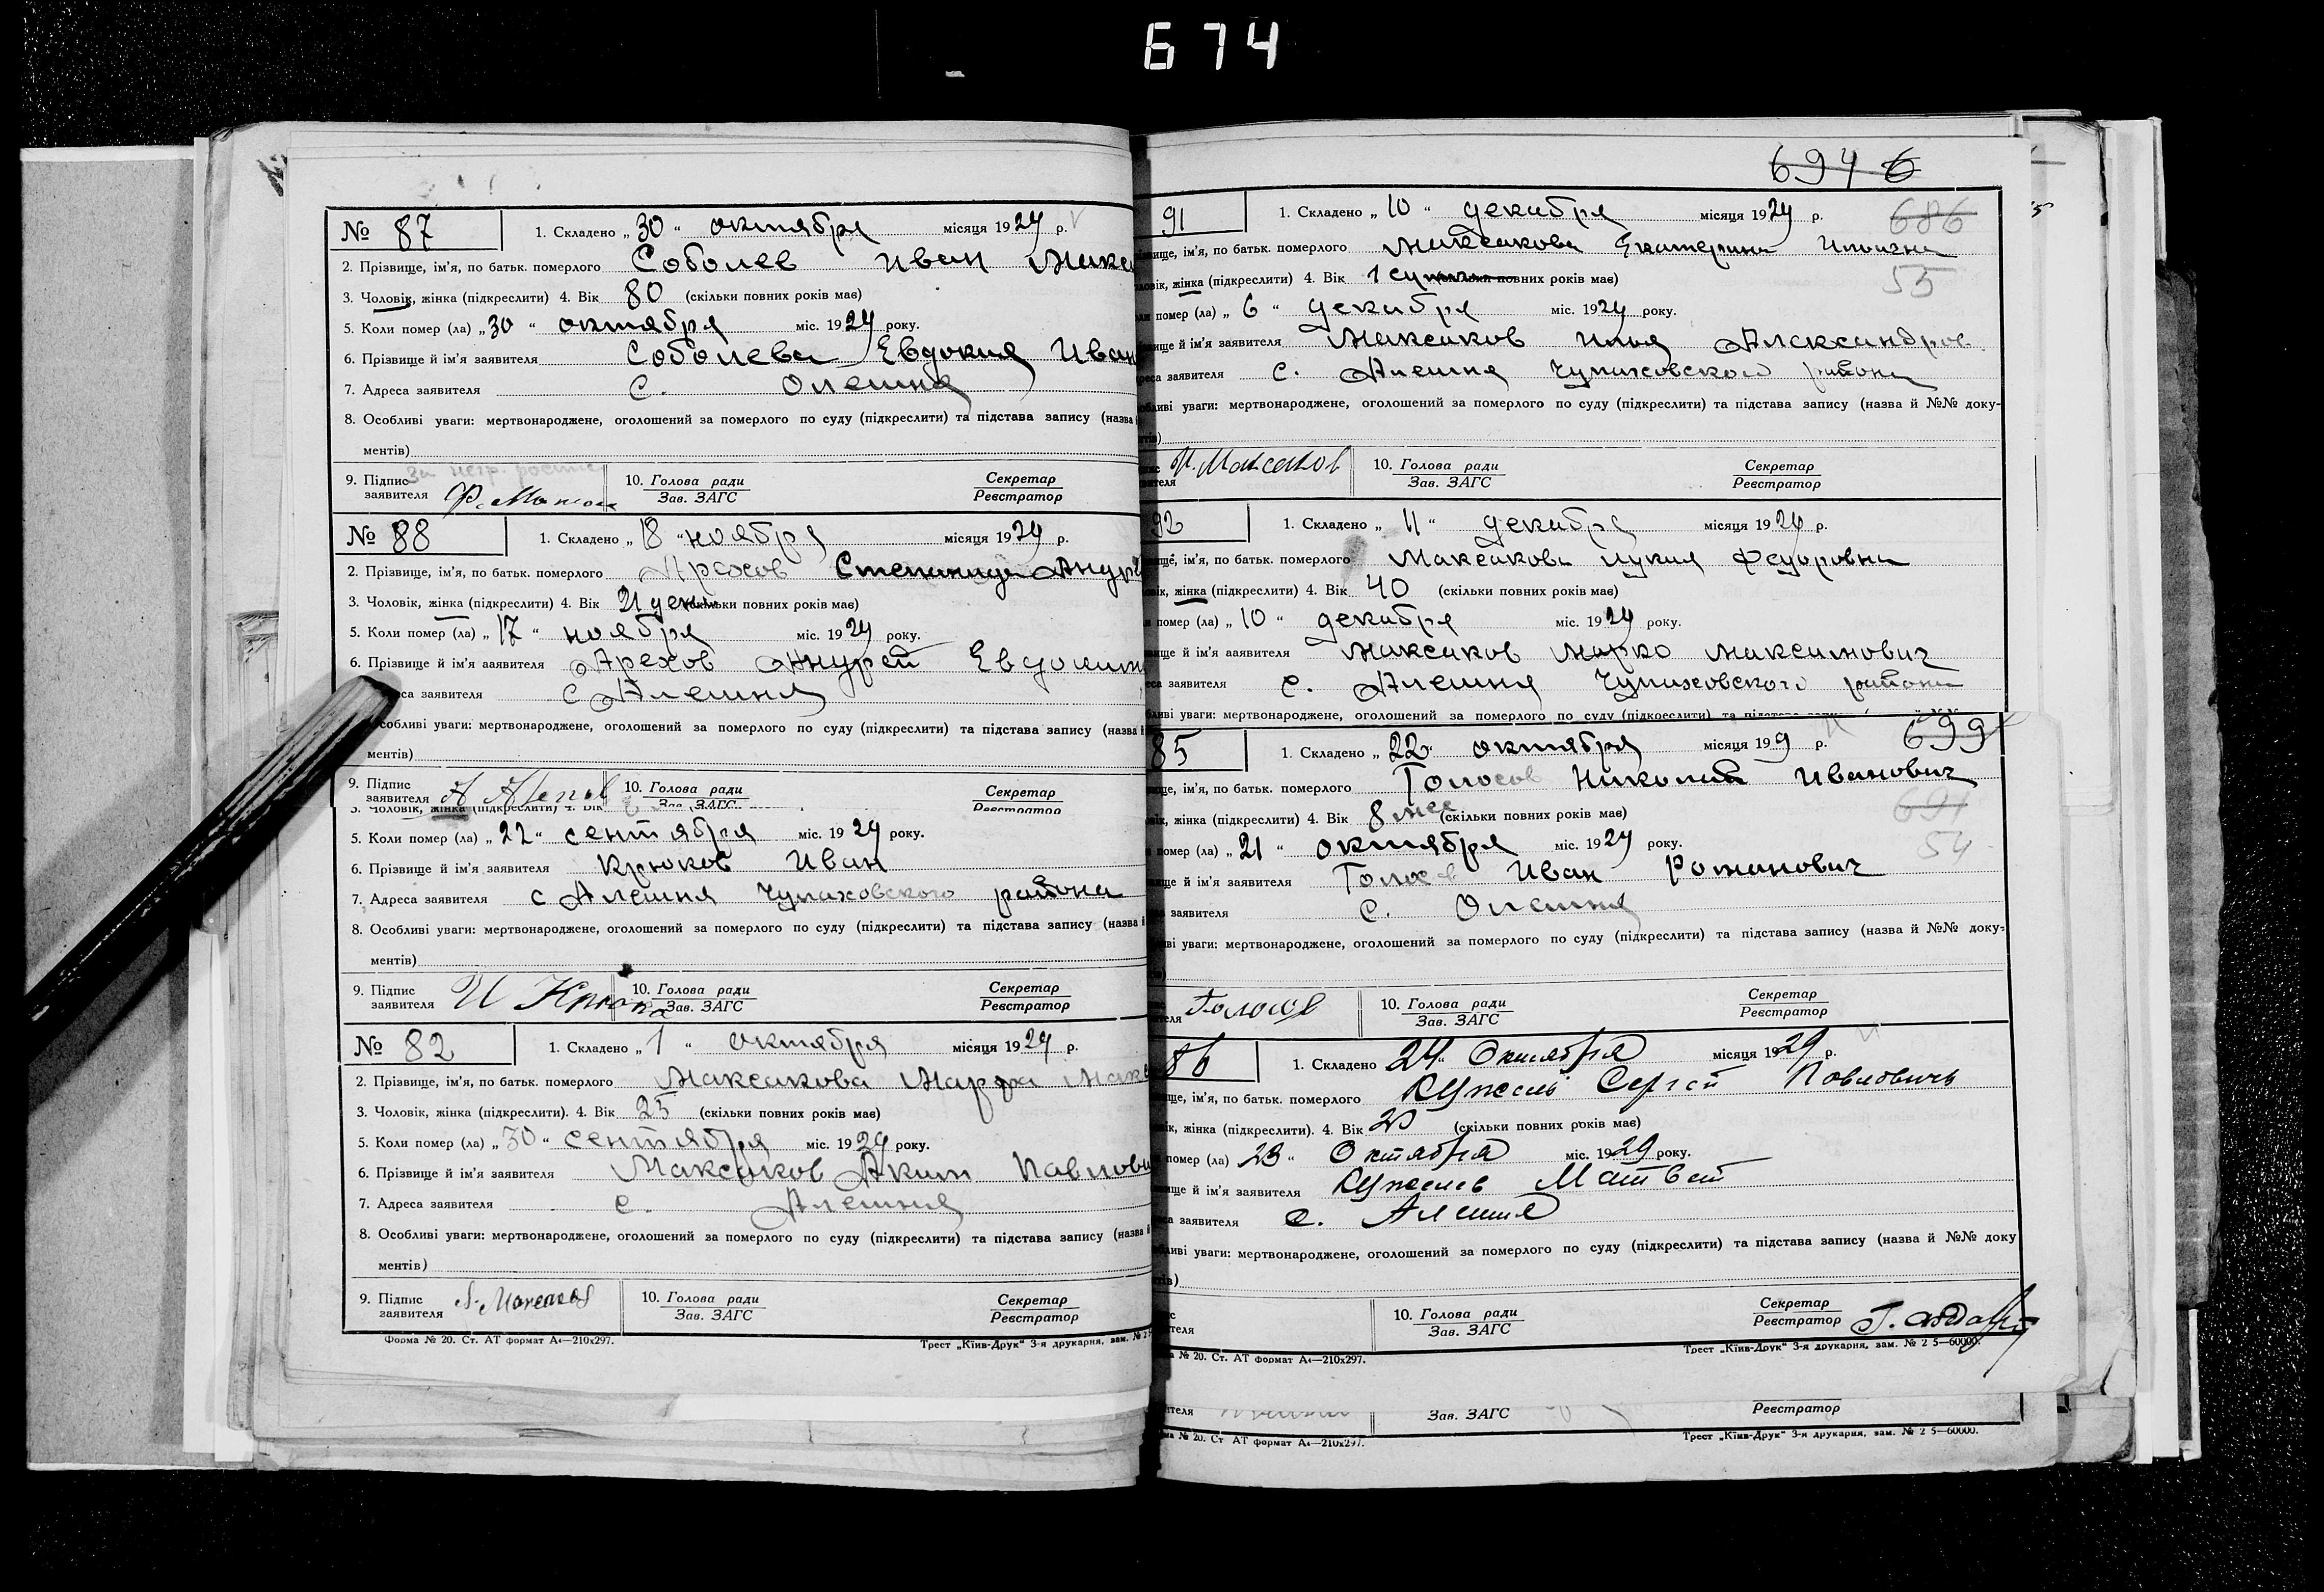 674
№ 87
1. Складено „ 30 “ октября місяця 1929 р.
2. Прізвище, ім'я, по батьк. померлого Соболев Иван Макс
3. Чоловік, жінка (підкреслити) 4. Вік 80 (скільки повних років має)
5. Коли помер (ла) „ 30 “ октября міс. 1929 року.
6. Прізвище й ім'я заявителя Соболева Евдокия Иван
7. Адреса заявителя с. Олешня
8. Особливі уваги: мертвонароджене, оголошений за померлого по суду (підкреслити) та підстава запису (назва й
ментів)
За негр. роспис
9. Підпис заявителя
10. Голова ради
Зав. ЗАГС
Секретар
Реєстратор
№ 88
1. Складено „ 18 “ ноября місяця 1929 р.
2. Прізвище, ім'я, по батьк. померлого Арехов Степанида Андре
3. Чоловік, жінка (підкреслити) 4. Вік 21 ден (скільки повних років має)
5. Коли помер (ла) „ 17 “ ноября міс. 1929 року.
6. Прізвище й ім'я заявителя Арехов Андрей Евдоким
са заявителя с Алешня
собливі уваги: мертвонароджене, оголошений за померлого по суду (підкреслити) та підстава запису (назва й
ментів)
9. Підпис заявителя
10. Голова ради
Зав. ЗАГС
Секретар
Реєстратор
3. Чоловік, жінка (підкреслити) 4. Вік
5. Коли помер (ла) „ 22 “ сентября міс. 1929 року.
6. Прізвище й ім'я заявителя Крюков Иван
7. Адреса заявителя с Алешня Чупаховского района
8. Особливі уваги: мертвонароджене, оголошений за померлого по суду (підкреслити) та підстава запису (назва й
ментів)
9. Підпис заявителя И Крюко
10. Голова ради
Зав. ЗАГС
Секретар
Реєстратор
№ 82
1. Складено „ 1 “ октября місяця 1929 р.
2. Прізвище, ім'я, по батьк. померлого Максакова Марфа Макс
3. Чоловік, жінка (підкреслити). 4. Вік 25 (скільки повних років має)
5. Коли помер (ла) „ 30 “ сентября міс. 1929 року.
6. Прізвище й ім'я заявителя Максаков Аким Павлови
7. Адреса заявителя с. Алешня
8. Особливі уваги: мертвонароджене, оголошений за померлого по суду (підкреслити) та підстава запису (назва й
ментів)
9. Підпис заявителя А. Максаков
10. Голова ради
Зав. ЗАГС
Секретар
Реєстратор
Форма № 20. Ст. АТ формат А4—210x297.
Трест „Київ-Друк“ 3-я друкарня, зам. № 25
694 6
91
1. Складено „ 10 “ декабря місяця 1929 р.
686
вище, ім'я, по батьк. померлого Максакова Екатерина Ильична
овік, жінка (підкреслити) 4. Вік 1 сутки (скільки повних років має)
55
помер (ла) „ 6 “ декабря міс. 1929 року.
вище й ім'я заявителя Максаков Илья Александров
реса заявителя с. Алешня Чупаховского района
бливі уваги: мертвонароджене, оголошений за померлого по суду (підкреслити) та підстава запису (назва й №№ доку-
тів)
И. Максаков
10. Голова ради
Зав. ЗАГС
Секретар
Реєстратор
92
1. Складено „ 11 “ декабря місяця 1929 р.
вище, ім'я, по батьк. померлого Максакова Лукия Федоровна
вік, жінка (підкреслити) 4. Вік 40 (скільки повних років має)
помер (ла) „ 10 “ декабря міс. 1929 року.
вище й ім'я заявителя Максаков Марко Максимович
еса заявителя с. Алешня Чупаховского района
бливі уваги: мертвонароджене, оголошений за померлого по суду (підкреслити) та підстава
699
85
1. Складено „ 22 “ октября місяця 19 9 р.
ще, ім'я, по батьк. померлого Голосов Николай Иванович
691
ік, жінка (підкреслити) 4. Вік 8 мес (скільки повних років має)
помер (ла) „ 21 “ октября міс. 1929 року.
54
ще й ім'я заявителя Голосов Иван Романович
заявителя с. Олешня
ві уваги: мертвонароджене, оголошений за померлого по суду (підкреслити) та підстава запису (назва й №№ доку-
Голосов
10. Голова ради
Зав. ЗАГС
Секретар
Реєстратор
86
1. Складено 24 “ Октября місяця 1929 р.
ще, ім'я, по батьк. померлого Сергей Павловичь
ік, жінка (підкреслити). 4. Вік (скільки повних років має)
помер (ла) 23 “ Октября міс. 1929 року.
ще й ім'я заявителя Матвей
а заявителя с. Алешня
бливі уваги: мертвонароджене, оголошений за померлого по суду (підкреслити) та підстава запису (назва й №№ доку
тів)
10. Голова ради
Зав. ЗАГС
Секретар
Реєстратор
№ 20. Ст. АТ формат А4—210x297.
Трест „Київ-Друк“ 3-я друкарня, зам. № 2 5—60000.
ителя
Зав. ЗАГС
Реєстратор
ма № 20. Ст АТ формат А4—210x297.
Трест „Київ-Друк“ 3-я друкарня, зам. № 2 5—60000.